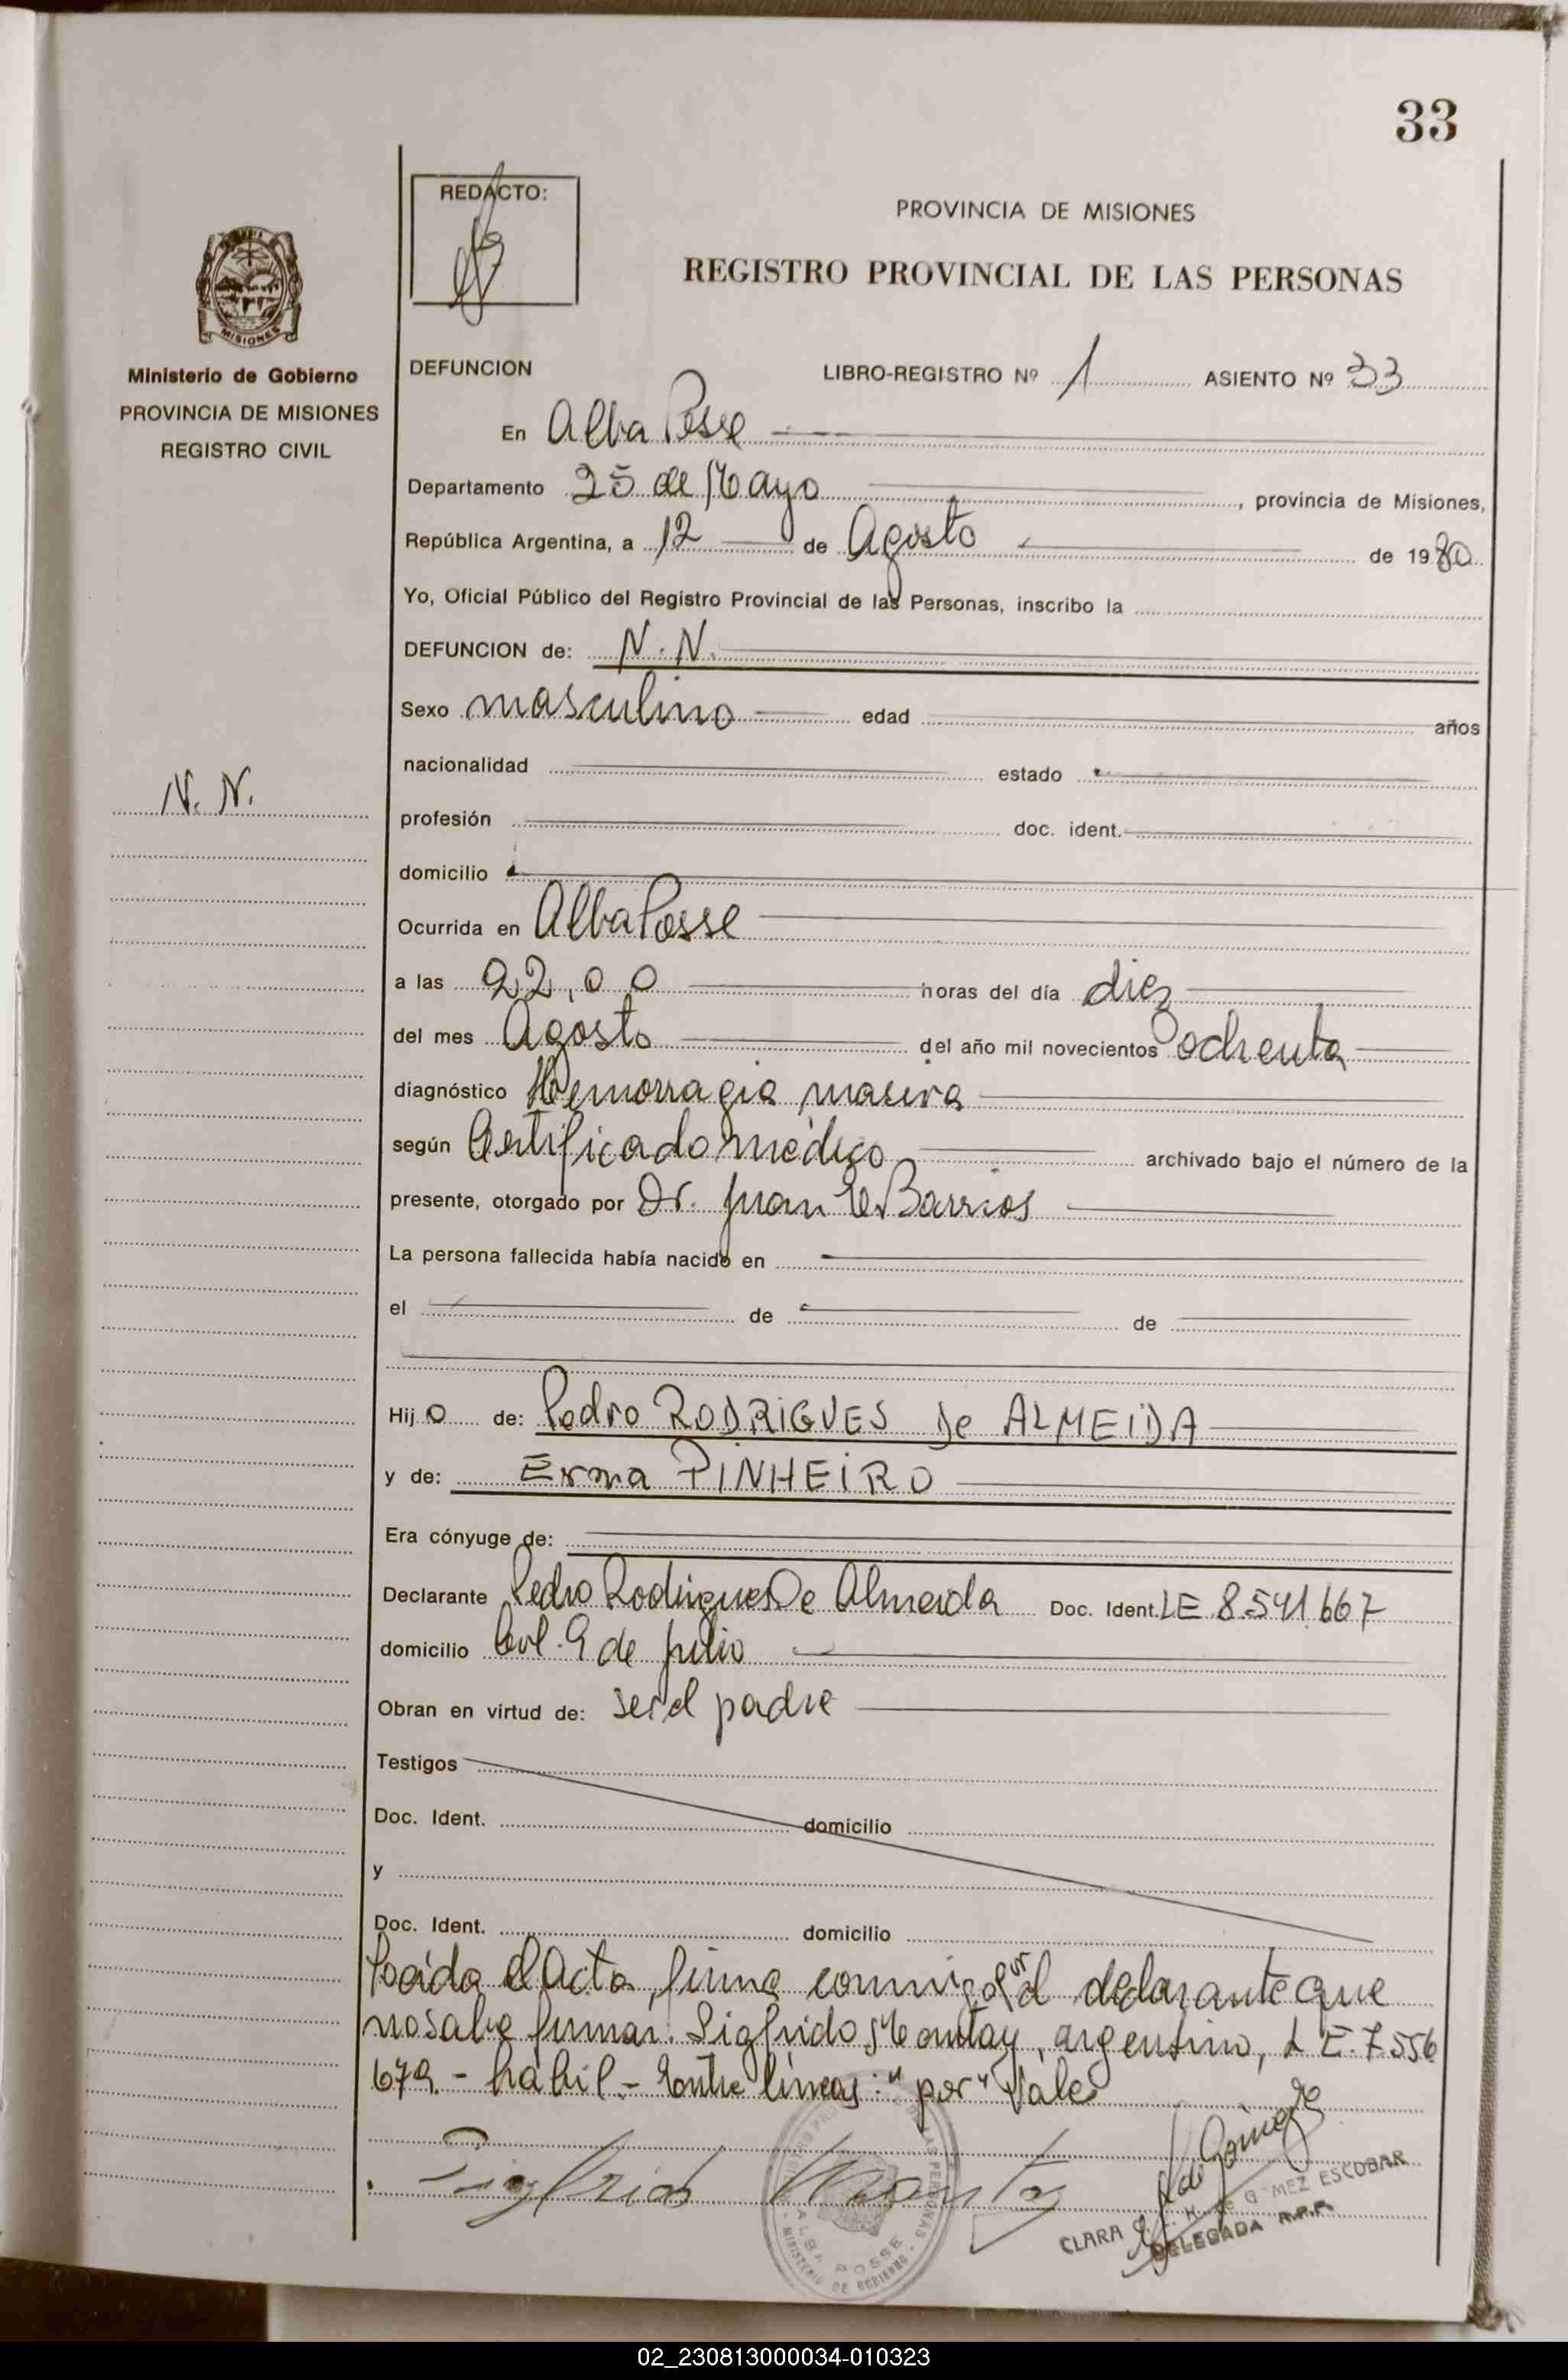 33
REDACTO:
PROVINCIA DE MISIONES
REGISTRO PROVINCIAL DE LAS PERSONAS
MISIONES
Ministerio de Gobierno
PROVINCIA DE MISIONES
REGISTRO CIVIL
DEFUNCION LIBRO-REGISTRO Nº 1 ASIENTO Nº 33
En Alba Posse
Departamento 25 de Mayo, provincia de Misiones,
República Argentina, a 12 de Agosto de 1980
Yo, Oficial Público del Registro Provincial de las Personas, inscribo la
DEFUNCION de: N. N.
Sexo masculino edad años
nacionalidad estado
N. N.
profesión doc. ident.
domicilio
Ocurrida en Alba Posse
a las 22,00 horas del día diez
del mes Agosto del año mil novecientos ochenta
diagnóstico Hemorragia masiva
según Certificado médico archivado bajo el número de la
presente, otorgado por Dr. Juan E. Barrios
La persona fallecida había nacido en
el de de
Hijo de: Pedro RODRIGUES De ALMEIDA
y de: Erma PINHEIRO
Era cónyuge de:
Declarante Pedro Rodrigues De Almeida Doc. Ident. LE 8.541.667
domicilio Col. 9 de Julio
Obran en virtud de: ser el padre
Testigos
Doc. Ident. domicilio
y
Doc. Ident. domicilio
Leída el Acta, firma conmigo por el declarante que
no sabe firmar. Sigfrido Montay, argentino, L E. 7.556
679. - hábil. - Entre líneas: "por" Vale
ALBA POSSE
MINISTERIO DE GOBIERNO
CLARA H. de GOMEZ ESCOBAR
DELEGADA R.P.P.
02_230813000034-010323